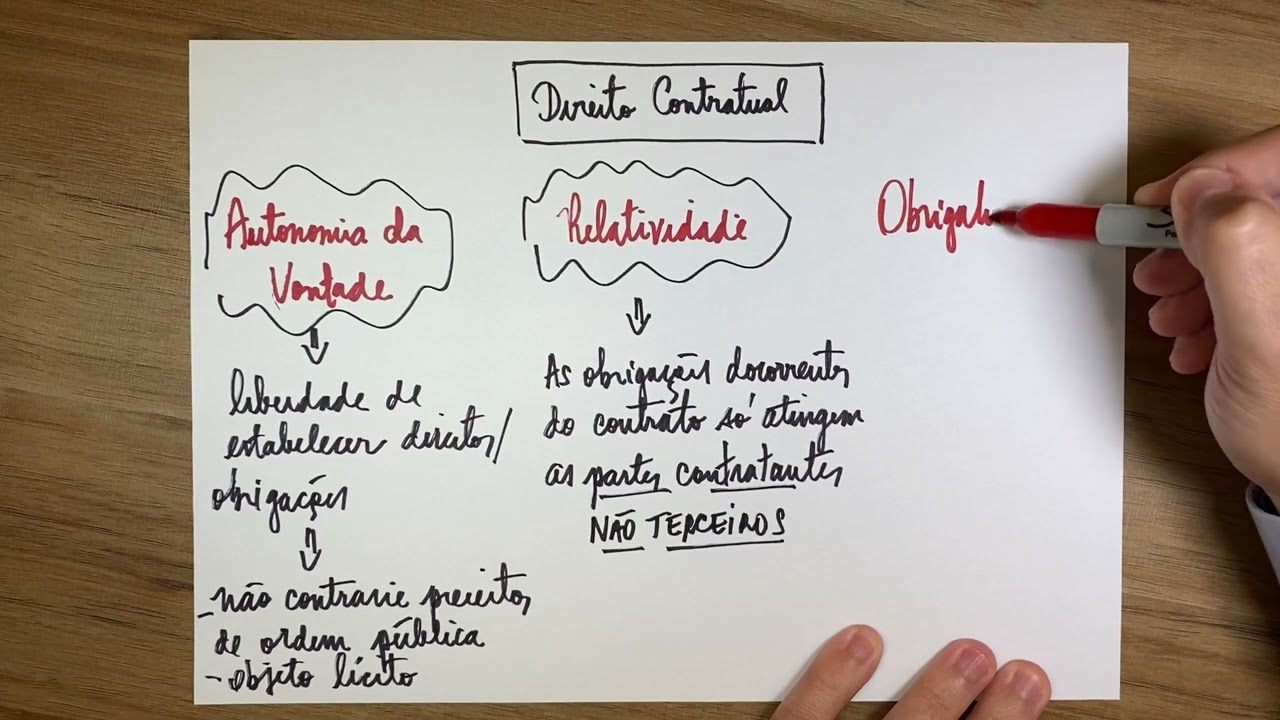 Direito Contratual
Autonomia da
Vontade
liberdade de
estabelecer direitos/
obrigações
-não contrarie preceitos
de ordem pública
-objeto lícito
Relatividade
As obrigações decorrentes
do contrato só atingem
as partes contratantes
NÃO TERCEIROS